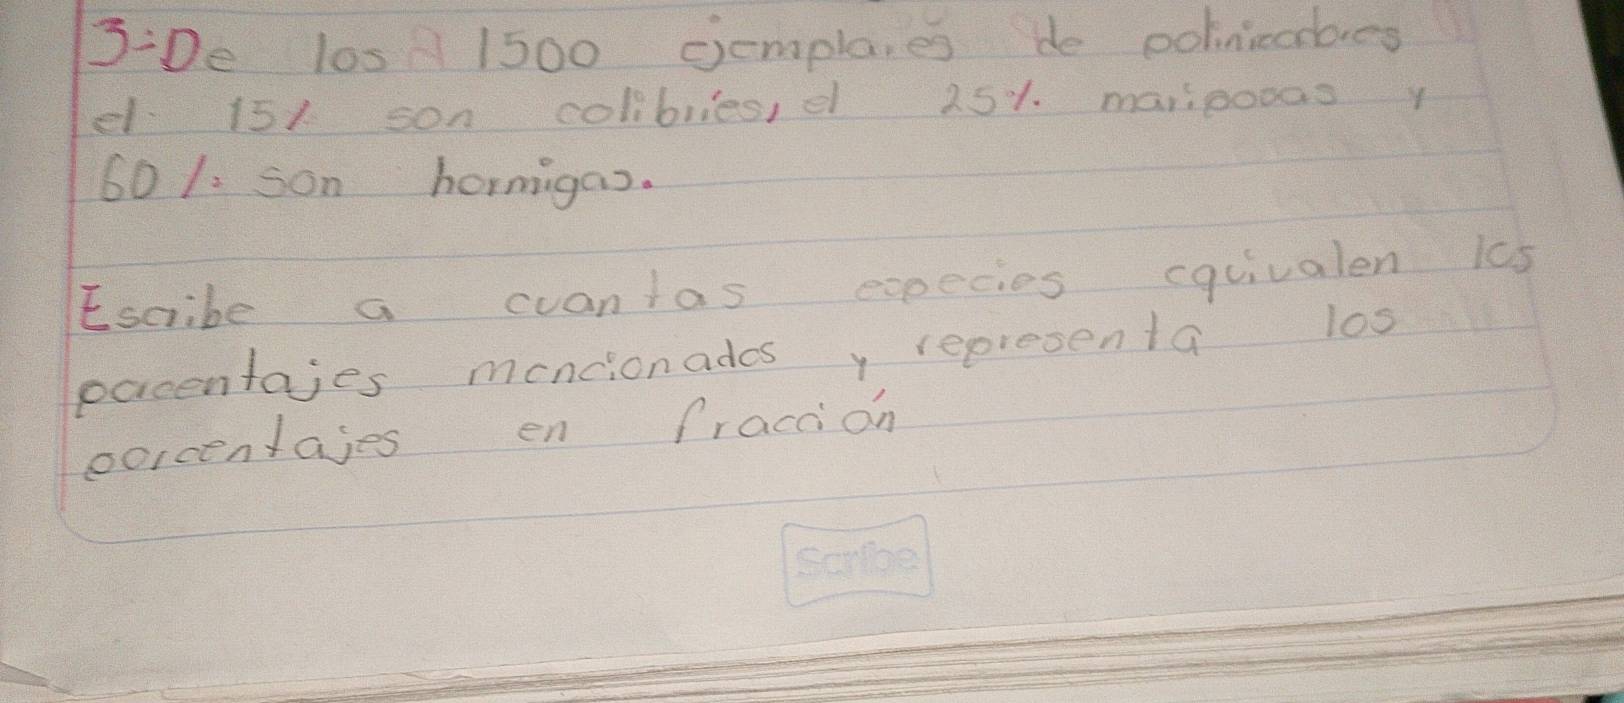 3=De los 1500 ejemplares de polinizadores
el 15% son colibríes, el 25%. mariposas y
60%. son hormigas.
Escribe a cuantas especies equivalen los
porcentajes mencionados y representa los
porcentajes en fracción
Scribe